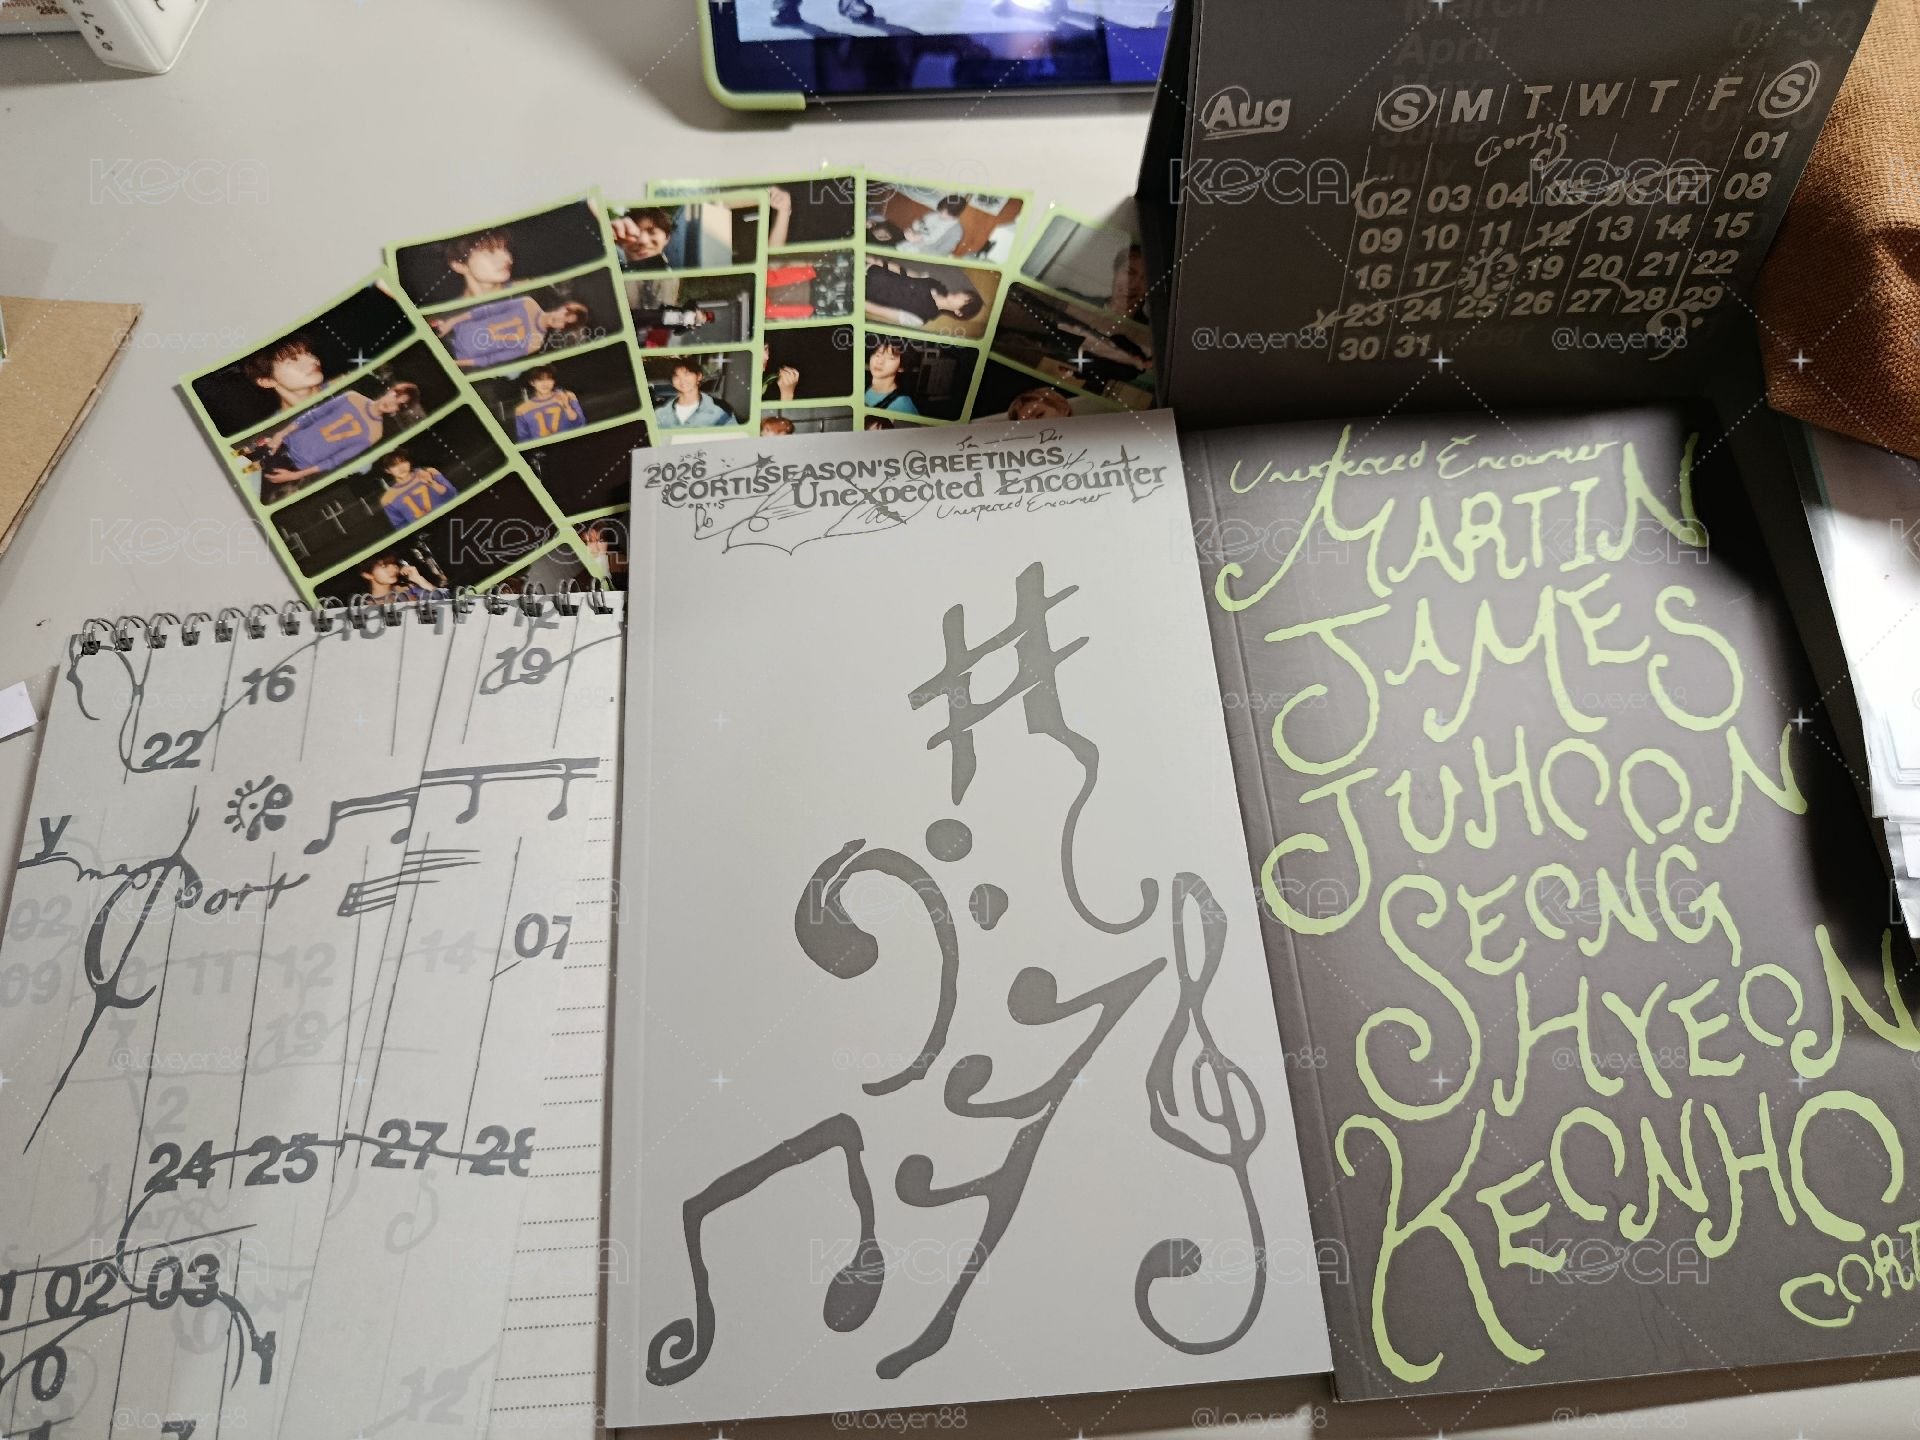 Aug
S M T W T F S
Cortis
01
02 03 04 05 06 07 08
09 10 11 12 13 14 15
16 17 19 20 21 22
23 24 25 26 27 28 29
30 31
17
17
17
17
2026 SEASON'S GREETINGS
CORTIS Unexpected Encounter
CORTIS
Unexpected Encounter
Unexpected Encounter
MARTIN
JAMES
JUHOON
SEONG
HYEON
KEONHO
CORT
16 19
22
y
ort
02
07
09 11 12 14
19
24 25 27 28
02 03
12
KOCA
@loveyen88